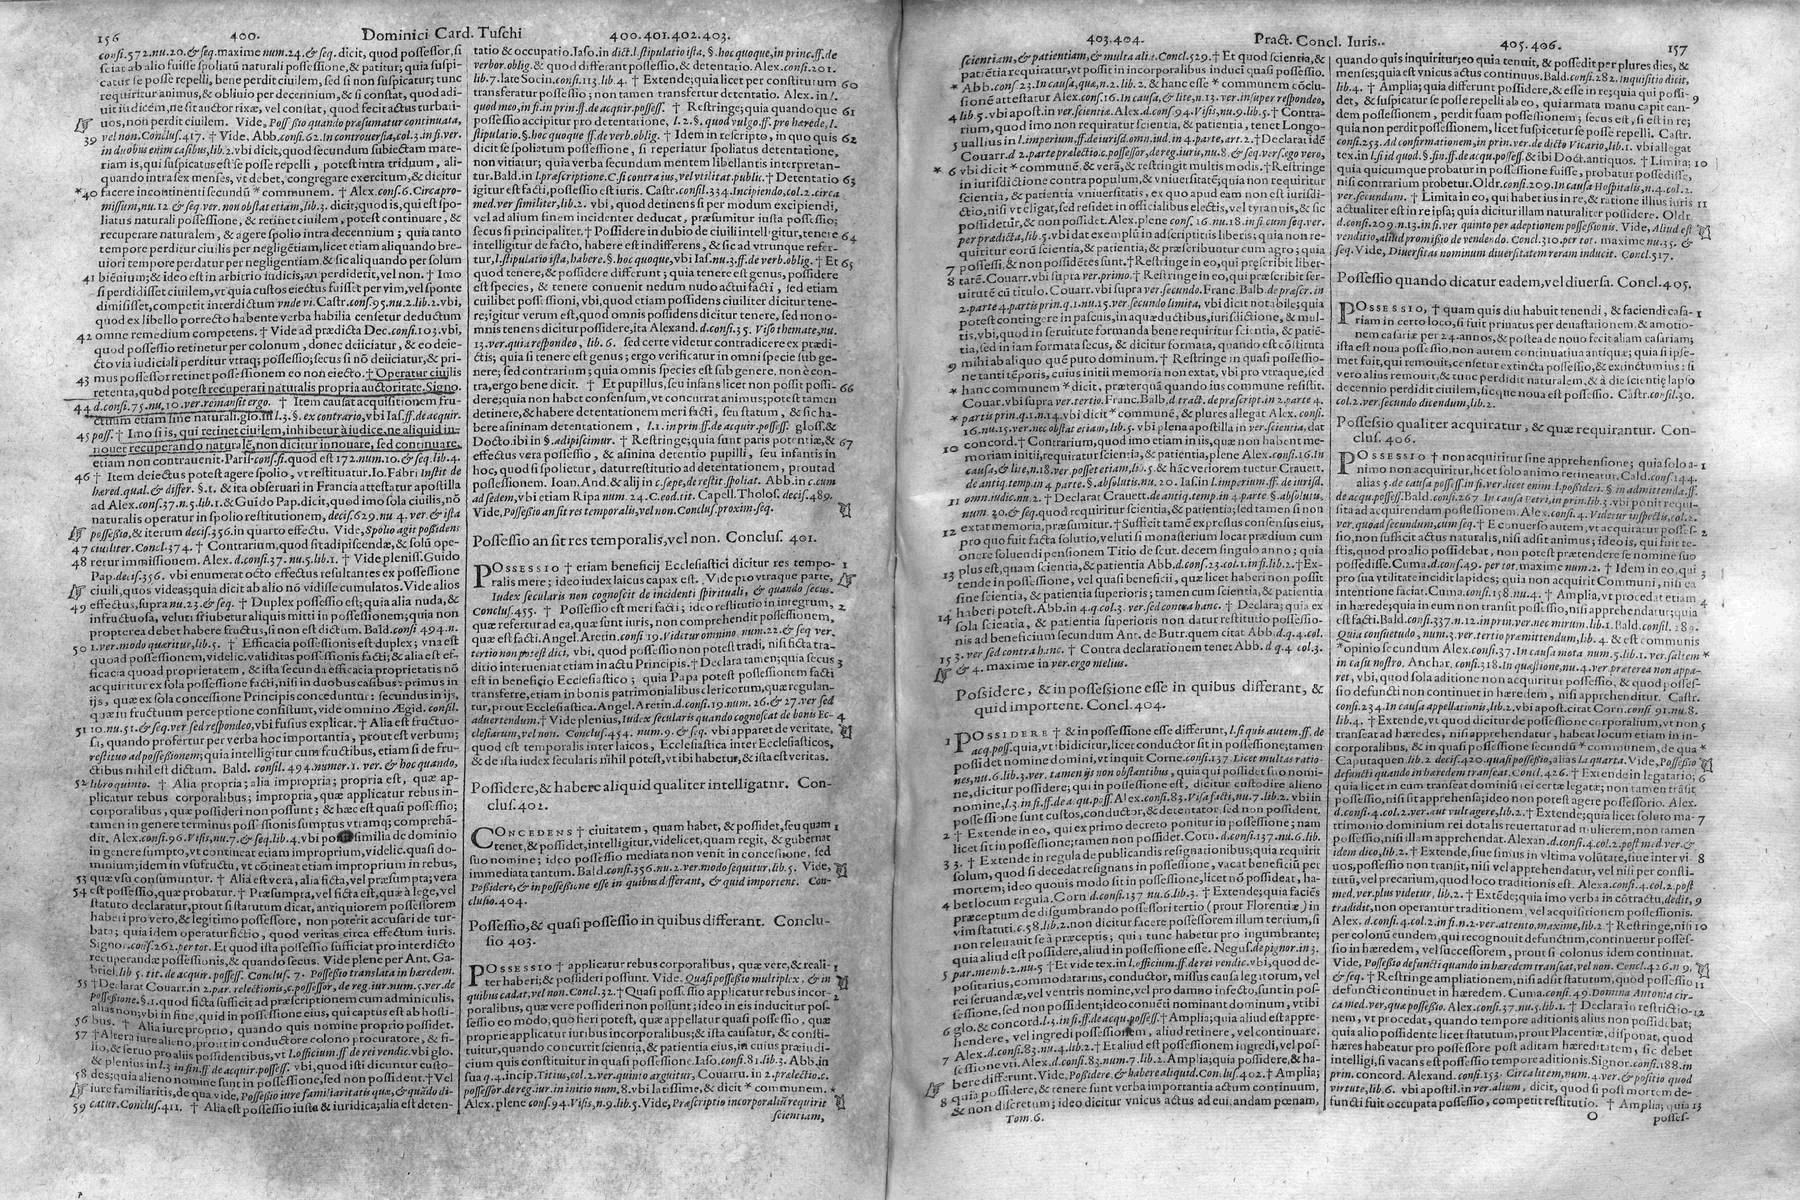 156 400. Dominici Card. Tuschi 400.401.402.403.
consi.572.nu.20.& seq. maxime num.24.& seq. dicit, quod possessor, si
sciat ab alio fuisse spoliatũ naturali possessione, & patitur; quia suspi-
catur se posse repelli, bene perdit ciuilem, sed si non suspicatur; tunc
requiritur animus, & obliuio per decennium, & si constat, quod adi-
uit iudicem, ne sit auctor rixæ, vel constat, quod fecit actus turbati-
uos, non perdit ciuilem. Vide, Possessio quando præsumatur continuata,
39 vel non. Conclus.417. † Vide, Abb. consi.62. In controuersia, col.3. in fi. ver.
in duobus enim casibus, lib.2. vbi dicit, quod secundum subiectam mate-
riam is, qui suspicatus est se posse repelli, potest intra triduum, ali-
quando intra sex menses, vt debet, congregare exercitum, & dicitur
*40 facere incontinenti secundũ * communem. † Alex. cons.6. Circa pro-
missum, nu.12 & seq. ver. non obstat etiam, lib.3. dicit; quod is, qui est spo-
liatus naturali possessione, & retinet ciuilem, potest continuare, &
recuperare naturalem, & agere spolio intra decennium; quia tanto
tempore perditur ciuilis per negligẽtiam, licet etiam aliquando bre-
uiori tempore perdatur per negligentiam & sic aliquando per solum
41 biẽnium; & ideo est in arbitrio iudicis, an perdiderit, vel non. † Imo
si perdidisset ciuilem, vt quia custos eiectus fuisset per vim, vel sponte
dimisisset, competit interdictum vnde vi. Castr. cons.95. nu.2. lib.2. vbi,
quod ex libello porrecto habente verba habilia censetur deducta
42 omne remedium competens. † Vide ad prædicta Dec. consi.103. vbi,
quod possessio retinetur per colonum, donec deiiciatur, & eo deie-
cto via iudiciali perditur vtraq; possessio; secus si nõ deiiciatur, & pri-
43 mus possessor retinet possessionem eo non eiecto. † Operatur ciuilis
retenta, quòd potest recuperari naturalis propria auctoritate. Signo.
44 d. consi.75. nu.10. ver. remansit ergo. † Item causat acquisitionem fru-
ctuum etiam sine naturali. glo. in l.3. §. ex contrario, vbi Ias. ff. de acquir.
45 poss. † Imo si is, qui retinet ciuilem, inhibetur à iudice, ne aliquid in-
nouet recuperando naturalẽ, non dicitur innouare, sed continuare,
etiam non contrauenit. Paris. consi. fi. quod est 172. num.10. & seq. lib.4.
46 † Item deiectus potest agere spolio, vt restituatur. Io. Fabri Instit. de
hæred. qual. & differ. §.1. & ita obseruari in Francia attestatur apostilla
ad Alex. cons.37. n.5. lib.1. & Guido Pap. dicit, quod imo sola ciuilis, nõ
naturalis operatur in spolio restitutionem, decis.629. nu 4. ver. & ista
possessio, & iterum decis.356. in quarto effectu. Vide, Spolio agit possidens
47 ciuiliter. Concl.374. † Contrarium, quod sit adipiscendæ, & solũ ope-
48 retur immissionem. Alex. d. consi.37. nu.5. lib.1. † Vide pleniss. Guido
Pap. decis.356. vbi enumerat octo effectus resultantes ex possessione
ciuili, quos videas; quia dicit ab alio nõ vidisse cumulatos. Vide alios
49 effectus, supra nu.23. & seq. † Duplex possessio est; quia alia nuda, &
infructuosa, veluti si iubetur aliquis mitti in possessionem; quia non
propterea debet habere fructus, si non est dictum. Bald. consi 494. n.
50 1. ver. modo quæritur, lib.5. † Efficacia possessionis est duplex; vna est
quoad possessionem, videlic. validitas possessionis facti; & alia est ef-
ficacia quoad proprietatem, & ista secunda efficacia proprietatis nõ
acquiritur ex sola possessione facti, nisi in duobus casibus: primus in
ijs, quæ ex sola concessione Principis conceduntur: secundus in ijs,
quæ in fructuum perceptione consistunt, vide omnino Ægid. consil.
51 10. nu.51. & seq. ver sed respondeo, vbi fusius explicat. † Alia est fructuo-
sa, quando profertur per verba hoc importantia, prout est verbum;
restituo ad possessionem; quia intelligitur cum fructibus, etiam si de fru-
ctibus nihil est dictum. Bald. consil. 494. numer.1. ver. & hoc quando,
52 libro quinto. † Alia propria; alia impropria; propria est, quæ ap-
plicatur rebus corporalibus; impropria, quæ applicatur rebus in-
corporalibus, quæ possideri non possunt; & hæc est quasi possessio;
tamen in genere terminus possessionis sumptus vtramq; comprehẽ-
dit. Alex. consi.96. Visis, nu.7. & seq. lib.4. vbi po similia de dominio
in genere sumpto, vt contineat etiam improprium, videlic. quasi do-
minium; idem in vsufructu, vt cõtineat etiam improprium in rebus,
53 quæ vsu consumuntur. † Alia est vera, alia ficta, vel præsumpta; vera
54 est possessio, quæ probatur. † Præsumpta, vel ficta est, quæ à lege, vel
statuto declaratur, prout si statutum dicat, antiquiorem possessorem
haberi pro vero, & legitimo possessore, non poterit accusari de tur-
bata; quia idem operatur fictio, quod veritas circa effectum iuris.
Signor. consi.262. per tot. Et quod ista possessio sufficiat pro interdicto
recuperandæ possessionis, & quando secus. Vide plene per Ant. Ga-
briel. lib 5. tit. de acquir. possess. Conclus. 7. Possessio translata in hæredem.
55 † Declarat Couarr. in 2. par. relectionis, c. possessor, de reg. iur. num.5. ver. de
possessione. §.1. quod ficta sufficit ad præscriptionem cum adminiculis,
alias non; vbi in fine, quid in possessione eius, qui captus est ab hosti-
56 bus. † Alia iure proprio, quando quis nomine proprio possidet.
57 † Altera iure alieno, prout in conductore colono procuratore, & fi-
lio, & seruo pro aliis possidentibus, vt l. officium. ff de rei vendic. vbi glo.
& plenius in l.3 in fin. ff de acquir. possess. vbi, quod isti dicuntur custo-
58 des; quia alieno nomine sunt in possessione, sed non possident. † Vel
iure familiaritatis, de qua vide, Possessio iure familiaritatis quæ, & quãdo di-
59 catur. Conclus.411. † Alia est possessio iusta & iuridica; alia est deten-
tatio & occupatio. Iaso. in dict. l. stipulatio ista, §. hoc quoque, in princ. ff. de
verbor. oblig. & quod differant possessio, & detentatio. Alex. cons.201.
lib.7. late Socin. cons.113. lib.4. † Extende; quia licet per constitutum 60
transferatur possessio; non tamen transfertur detentatio. Alex. in l.
quod meo, in fi. in prin. ff. de acquir. possess. † Restringe; quia quandoque 61
possessio accipitur pro detentatione, l.2. §. quod vulgo. ff. pro hærede, l.
stipulatio. §. hoc quoque ff. de verb. oblig. † Idem in rescripto, in quo quis 62
dicit se spoliatum possessione, si reperiatur spoliatus detentatione,
non vitiatur; quia verba secundum mentem libellantis interpretan-
tur. Bald. in l. præscriptione. C. si contra ius, vel vtilitat. public. † Detentatio 63
igitur est facti, possessio est iuris. Castr. consil.334. Incipiendo, col.2. circa
med. ver similiter, lib.2. vbi, quod detinens si per modum excipiendi,
vel ad alium finem incidenter deducat, præsumitur iusta possessio;
secus si principaliter. † Possidere in dubio de ciuili intelligitur, tenere 64
intelligitur de facto, habere est indifferens, & sic ad vtrunque refer-
tur, l. stipulatio ista, habere. §. hoc quoque, vbi Ias. nu.3. ff. de verb. oblig. † Et 65
quod tenere, & possidere differunt; quia tenere est genus, possidere
est species, & tenere conuenit nedum nudo actui facti, sed etiam
cuilibet possessioni, vbi, quod etiam possidens ciuiliter dicitur tene-
re; igitur verum est, quod omnis possidens dicitur tenere, sed non o-
mnis tenens dicitur possidere, ita Alexand. d. cons.35. Viso themate, nu.
13. ver. quia respondeo, lib. 6. sed certe videtur contradicere ex prædi-
ctis; quia si tenere est genus; ergo verificatur in omni specie sub ge-
nere; sed contrarium; quia omnis species est sub genere, non è con-
tra, ergo bene dicit. † Et pupillus, seu infans licet non possit possi- 66
dere; quia non habet consensum, vt concurrat animus; potest tamen
detinere, & habere detentationem meri facti, seu statum, & sic ha-
bere asininam detentationem, l.1. in prin. ff. de acquir. possess. gloss. &
Docto. ibi in §. adipiscimur. † Restringe; quia sunt paris potentiæ, & 67
effectus vera possessio, & asinina detentio pupilli, seu infantis in
hoc, quod si spolietur, datur restitutio ad detentationem, prout ad
possessionem. Ioan. And. & alij in c. sæpe, de restit. spoliat. Abb. in c. cum
ad sedem, vbi etiam Ripa num. 24. C. eod. tit. Capell. Tholos. decis.489.
Vide, Possessio an sit res temporalis, vel non. Conclus. proxim. seq.
Possessio an sit res temporalis, vel non. Conclus. 401.
POSSESSIO † etiam beneficij Ecclesiastici dicitur res tempo- 1
ralis mere; ideo iudex laicus capax est. Vide pro vtraque parte,
Iudex secularis non cognoscit de incidenti spirituali, & quando secus.
Conclus.455. † Possessio est meri facti; ideo restitutio in integrum, 2
quæ refertur ad ea, quæ sunt iuris, non comprehendit possessionem,
quæ est facti. Angel. Aretin. consi 19. Videtur omnino num.22. & seq ver.
tertio non potest dici, vbi, quod possessio non potest tradi, nisi ficta tra-
ditio interueniat etiam in actu Principis. † Declara tamen; quia secus 3
est in beneficio Ecclesiastico; quia Papa potest possessionem facti
transferre, etiam in bonis patrimonialibus clericorum, quæ regulan-
tur, prout Ecclesiastica. Angel. Aretin. d. cons.19. num.26. & 27. ver sed
aduertendum. † Vide plenius, Iudex secularis quando cognoscat de bonis Ec- 4
clesiarum, vel non. Conclus.454. num.9. & seq. vbi apparet de veritate,
quod est temporalis inter laicos, Ecclesiastica inter Ecclesiasticos,
& de ista iudex secularis nihil potest, vt ibi habetur, & ista est veritas.
Possidere, & habere aliquid qualiter intelligatur. Con-
clus. 402.
CONCEDENS † ciuitatem, quam habet, & possidet, seu quam 1
tenet, & possidet, intelligitur, videlicet, quam regit, & gubernat
suo nomine; ideo possessio mediata non venit in concessione, sed
immediata tantum. Bald. cons.356. nu.2. ver. modo sequitur, lib.5. Vide,
Possidere, & in possessione esse in quibus differant, & quid importent. Con-
clusio.404.
Possessio, & quasi possessio in quibus differant. Conclu-
sio 403.
POSSESSIO † applicatur rebus corporalibus, quæ vere, & reali- 1
ter haberi; & possideri possunt. Vide. Quasi possessio multiplex, & in
quibus cadat, vel non. Concl.32. † Quasi possessio applicatur rebus incor- 2
poralibus, quæ vere possideri non possunt; ideo in eis inducitur pos-
sessio eo modo, quo fieri potest, quæ appellatur quasi possessio, quæ
proprie applicatur iuribus incorporalibus; & ista causatur, & consti-
tuitur, quando concurrit scientia, & patientia eius, in cuius præiudi-
cium quis constituitur in quasi possessione. Iaso. consi.81. lib.3. Abb. in
sua q.4. incip. Titius, col.2. ver. quinto arguitur, Couarru. in 2. prælectio. c.
possessor. de reg. iur. in initio num.8. vbi latissime, & dicit * communem. *
Alex. plene cons.94. Visis, n.9. lib.5. Vide, Præscriptio incorporaliũ requirit
scientiam,
403.404. Pract. Concl. Iuris.. 405.406. 157
scientiam, & patientiam, & multa alia. Concl.529. † Et quod scientia, &
patiẽtia requiratur, vt possit in incorporalibus induci quasi possessio.
* Abb. cons.23. In causa, qua, n.2. lib.2. & hanc esse * communem cõclu-
sionẽ attestatur Alex. cons.16. In causa, & lite, n.13. ver. insuper respondeo,
4 lib.5. vbi apost. in ver. scientia. Alex. d. cons.94. Visis, nu.9. lib.5. † Contra-
rium, quod imo non requiratur scientia, & patientia, tenet Longo-
5 uallius in l. imperium, ff. de iurisd. omn. iud. in 4. parte, art.2. † Declara idẽ
Couarr. d 2. parte prælectio. c. possessor, de reg. iuris, nu.8. & seq. vers. ego vero,
* 6 vbi dicit * communẽ, & verã, & restringit multis modis. † Restringe
in iurisdictione contra populum, & vniuersitatẽ; quia non requiritur
scientia, & patientia vniuersitatis, ex quo apud eam non est iurisdi-
ctio, nisi vt eligat, sed residet in officialibus electis, vel tyrannis, & sic
possidetũr, & non possidet. Alex. plene cons. 16. nu.18. in fi. cum seq. ver.
per prædicta, lib.5. vbi dat exemplũ in adscriptitiis liberis; quia non re-
quiritur eorũ scientia, & patientia; & præscribuntur cum agro; quia
7 possessi, & non possidẽtes sunt. † Restringe in eo, qui præscribit liber-
8 tatẽ. Couarr. vbi supra ver. primo. † Restringe in eo, qui præscribit ser-
uitutẽ cũ titulo. Couarr. vbi supra ver. secundo. Franc. Balb. de præscr. in
2. parte 4. partis prin. q.1. nu.15. ver. secundo limita, vbi dicit notabile; quia
potest contingere in pascuis, in aquæductibus, iurisdictione, & mul-
tis, vbi, quod in seruitute formanda bene requiritur scientia, & patiẽ-
tia, sed in iam formata secus, & dicitur formata, quando est cõstituta
9 mihi ab aliquo quẽ puto dominum. † Restringe in quasi possessio-
ne tanti tẽporis, cuius initii memoria non extat, vbi pro vtraque, sed
* hanc communem * dicit, præterquã quando ius commune resistit.
Couar. vbi supra ver. tertio. Franc. Balb. d. tract. de præscript. in 2. parte 4.
* partis prin. q.1. n.14. vbi dicit * communẽ, & plures allegat Alex. consi.
16. nu.15. ver. nec obstat etiam, lib.5. vbi plena apostilla in ver. scientia, dat
10 concord. † Contrarium, quod imo etiam in iis, quæ non habent me-
moriam initij, requiritur scientia, & patientia, plene Alex. cons.16. In
causa, & lite, n.18. ver. posset etiam, lib.5. & hãc veriorem tuetur Crauett.
de antiq. temp. in 4 parte. §. absolutis. nu. 20. Ias. in l. imperium. ff. de iurisd.
11 omn. iudic. nu.2. † Declarat Crauett. de antiq. temp. in 4 parte §. absolutu.
num. 30. & seq. quod requiritur scientia, & patientia; sed tamen si non
extat memoria, præsumitur. † Sufficit tamẽ expressus consensus eius,
12 pro quo fuit facta solutio, veluti si monasterium locat prædium cum
onere soluendi pensionem Titio de scut. decem singulo anno; quia
plus est, quam scientia, & patientia Abb. d. cons.23. col.1. in fi. lib.2. † Ex-
13 tende in possessione, vel quasi beneficii, quæ licet haberi non possit
sine scientia, & patientia superioris; tamen cum scientia, & patientia
haberi potest. Abb. in 4. q. col.3. ver. sed contra hanc. † Declara; quia ex
14 sola scientia, & patientia superioris non datur restitutio possessio-
nis ad beneficium secundum Ant. de Butr. quem citat Abb. d. q.4. col.
15 3. ver sed contra hanc. † Contra declarationem tenet Abb. d q.4 col.3.
& 4. maxime in ver. ergo melius.
Possidere, & in possessione esse in quibus differant, &
quid importent. Concl. 404.
1 POSSIDERE † & in possessione esse differunt, l. si quis autem. ff. de
acq. poss. quia, vt ibi dicitur, licet conductor sit in possessione; tamen
possidet nomine domini, vt inquit Corne. cons.137 Licet multas ratio-
nes, nu.6. lib.3. ver. tamen ijs non obstantibus, quia qui possidet suo nomi-
ne, dicitur possidere; qui alieno nomine, dicitur custodire alieno
nomine, l.3. in fi. ff. de acqu. poss. Alex. consi.83. Visa facti, nu.7. lib.2. vbi in
possessione sunt custos, conductor, & detentator, sed non possident.
2 † Extende in eo, qui ex primo decreto ponitur in possessione; nam
licet sit in possessione; tamen non possidet. Corn. d. cons.137. nu.6. lib.
3 3. † Extende in regula de publicandis resignationibus; quia requirit
solum, quod si decedat resignans in possessione, vacat beneficiũ per
mortem; ideo quouis modo sit in possessione, licet nõ possideat, ha-
4 bet locum regula. Corn d cons.137 nu.6. lib.3. † Extende; quia faciẽs
præceptum de disgumbrando possessori tertio (prout Florentiæ) in
vim statuti. c.58. lib.2. non dicitur facere possessorem illum tertium, si
non releuauit se à præceptis; qui a tunc habetur pro ingumbrante;
quia aliud est possidere, aliud in possessione esse. Negus. de pignor. in 3.
5 par. memb.2. nu.5 † Et vide tex. in l. officium. ff. de rei vendic. vbi, quod de-
positarius, commodatarius, conductor, missus causa legatorum, vel
rei seruandæ, vel ventris nomine, vel pro damno infecto, sunt in pos-
sessione, sed non possident; ideo conuẽti nominant dominum, vt ibi
6 glo. & concord. l.3. in fi. ff. de acqu. possess. † Amplia; quia aliud est appre-
hendere, vel ingredi possessionem, aliud retinere, vel continuare.
7 Alex. d. cons.83. nu.4. lib.2. † Et aliud est possessionem ingredi, vel pos-
sessione vti. Alex. d. cons.83. nu.7. lib.2. Amplia; quia possidere, & ha-
bere differunt. Vide, Possidere, & habere aliquid. Conclus.402. † Amplia;
quia possidere, & tenere sunt verba importantia actum continuum,
8 & non discretum; ideo dicitur vnicus actus ad eui tandam pœnam,
Tom. 6.
quando quis inquiritur; eo quia tenuit, & possedit per plures dies, &
menses; quia est vnicus actus continuus. Bald. consi.282. Inquisitio dicit,
lib.4. † Amplia; quia differunt possidere, & esse in re; quia qui possi- 9
det, & suspicatur se posse repelli ab eo, qui armata manu capit ean-
dem possessionem, perdit suam possessionem; secus est, si est in re;
quia non perdit possessionem, licet suspicetur se posse repelli. Castr.
consi.253. Ad confirmationem, in prin. ver. de dicto Vicario, lib.1. vbi allegat
tex. in l. si id quod. §. fin. ff. de acqu. possess. & ibi Doct. antiquos. † Limita; 10
quia quicumque probatur in possessione fuisse, probatur possedisse,
nisi contrarium probetur. Oldr. cons.209. In causa Hospitalis, n.4. col.2.
ver. secundum. † Limita in eo, qui habet ius in re, & ratione illius iuris 11
actualiter est in re ipsa; quia dicitur illam naturaliter possidere. Oldr.
d. cons.209. n.13. in fi. ver quinto per adeptionem possessionis. Vide, Aliud est
venditio, aliud promissio de vendendo. Concl.310. per tot. maxime nu.35. &
seq. Vide, Diuersitas nominum diuersitatem rerum inducit. Concl.517.
Possessio quando dicatur eadem, vel diuersa. Concl.405.
POSSESSIO, † quam quis diu habuit tenendi, & faciendi casa- 1
riam in certo loco, si fuit priuatus per deuastationem, & amotio-
nem casariæ per 24. annos, & postea de nouo fecit aliam casariam;
ista est noua possessio, non autem continuatiua antiquæ; quia si ipse-
met fuit, qui remouit, censetur extincta possessio, & exinctum ius: si
vero alius remouit, & tunc perdidit naturalem, & à die scientię lapso
decennio perdidit ciuilem, sicque noua est possessio. Castr. consil.30.
col.2. ver. secundo dicendum, lib.2.
Possessio qualiter acquiratur, & quæ requirantur. Con-
clus. 406.
POSSESSIO † non acquiritur sine apprehensione; quia solo a- 1
nimo non acquiritur, licet solo animo retineatur. Cald. cons.144.
alias 5. de causa possess. in fi. ver. licet enim l. possideri. §. in admittenda. ff.
de acqu. possess. Bald. cons.267 In causa Petri, in prin. lib.3. vbi ponit requi-
sita ad acquirendam possessionem. Alex. consi.4. Videtur inspectis, col.2.
ver. quoad secundum, cum seq. † E conuerso autem, vt acquiratur posses- 2
sio, non sufficit actus naturalis, nisi adsit animus; ideo is, qui fuit te-
stis, quod pro alio possidebat, non potest prætendere se nomine suo
possedisse. Cuma. d. cons.49. per tot. maxime num.2. † Idem in eo, qui
pro sua vtilitate incidit lapides; quia non acquirit Communi, nisi ea 3
intentione faciat. Cuma. cons.158. nu.4. † Amplia, vt procedat etiam
in hærede; quia in eum non transit possessio, nisi apprehendatur; quia 4
est facti. Bald. cons.337. n.12. in prin. ver. nec mirum. lib.1. Bald. consil. 289.
Quia consuetudo, num.3. ver. tertio præmittendum, lib.4. & est communis
* opinio secundum Alex. cons.37. In causa mota num.5. lib.1. ver. saltem *
in casu nostro. Anchar. consi.318. In quæstione, nu.4. ver præterea non appa-
ret, vbi, quod sola aditione non acquiritur possessio, & quod posses-
sio defuncti non continuet in hæredem, nisi apprehenditur. Castr.
consi.234. In causa appellationis, lib.2. vbi apost. citat Corn consi 91. nu.8.
lib.4. † Extende, vt quod dicitur de possessione corporalium, vt non 5
transeat ad hæredes, nisi apprehendatur, habeat locum etiam in in-
corporalibus, & in quasi possessione secundũ * communem, de qua *
Caputaquen. lib.2. decis.420. quasi possessio, alias la quarta. Vide, Possessio
defuncti quando in hæredem transeat. Concl.426. † Extende in legatario; 6
quia licet in eum transeat dominiũ rei certæ legatæ; non tamen trãsit
possessio, nisi sit apprehensa; ideo non potest agere possessorio. Alex.
d. consi.4. col.2. ver. aut vult agere, lib.2. † Extende; quia licet soluto ma- 7
trimonio dominium rei dotalis reuertatur ad mulierem, non tamen
possessio, nisi illam apprehendat. Alexan. d. cons.4. col.2. post med. ver. &
idem dico, lib.2. † Extende, siue simus in vltima volũtate, siue inter vi- 8
uos; possessio non transit, nisi vel apprehendatur, vel nisi per consti-
tutũ, vel precarium, quod loco traditionis est. Alexa. consi.4. col.2. post
med. ver. plus videtur, lib.2. † Extẽde; quia imo verba in cõtractu, dedit, 9
tradidit, non operantur traditionem, vel acquisitionem possessionis.
Alex. d. consi.4. col.2. in fi. n.2. ver. attento, maxime, lib.2 † Restringe, nisi 10
per colonũ eundem, qui recognouit defunctum, continuetur posses-
sio in hæredem, vel successorem, prout si colonus idem continuat.
Vide, Possessio defuncti quando in hæredem transeat, vel non. Concl.426. n 9.
& seq. † Restringe ampliationem, nisi adsit statutum, quod possessio 11
defuncti continuet in hæredem. Cuma. consi.49. Domina Antonia cir-
ca med. ver. qua possessio. Alex. cons.37. nu.5. lib.1. † Declara in restrictio- 12
nem, vt procedat, quando tempore aditionis alius non possidebat;
quia alio possidente licet statutum, prout Placentiæ, disponat, quod
hæres habeatur pro possessore post aditam hæreditatem, sic debet
intelligi, si vacans est possessio tempore aditionis. Signor. cons.188. in
prin. concord. Alexand. consi.153. Circa litem, num.4. ver. & positio quod
virtute, lib.6. vbi apostil. in ver. alium, dicit, quod si post mortem de-
functi fuit occupata possessio, competit restitutio. † Amplia; quia 13
O posses-